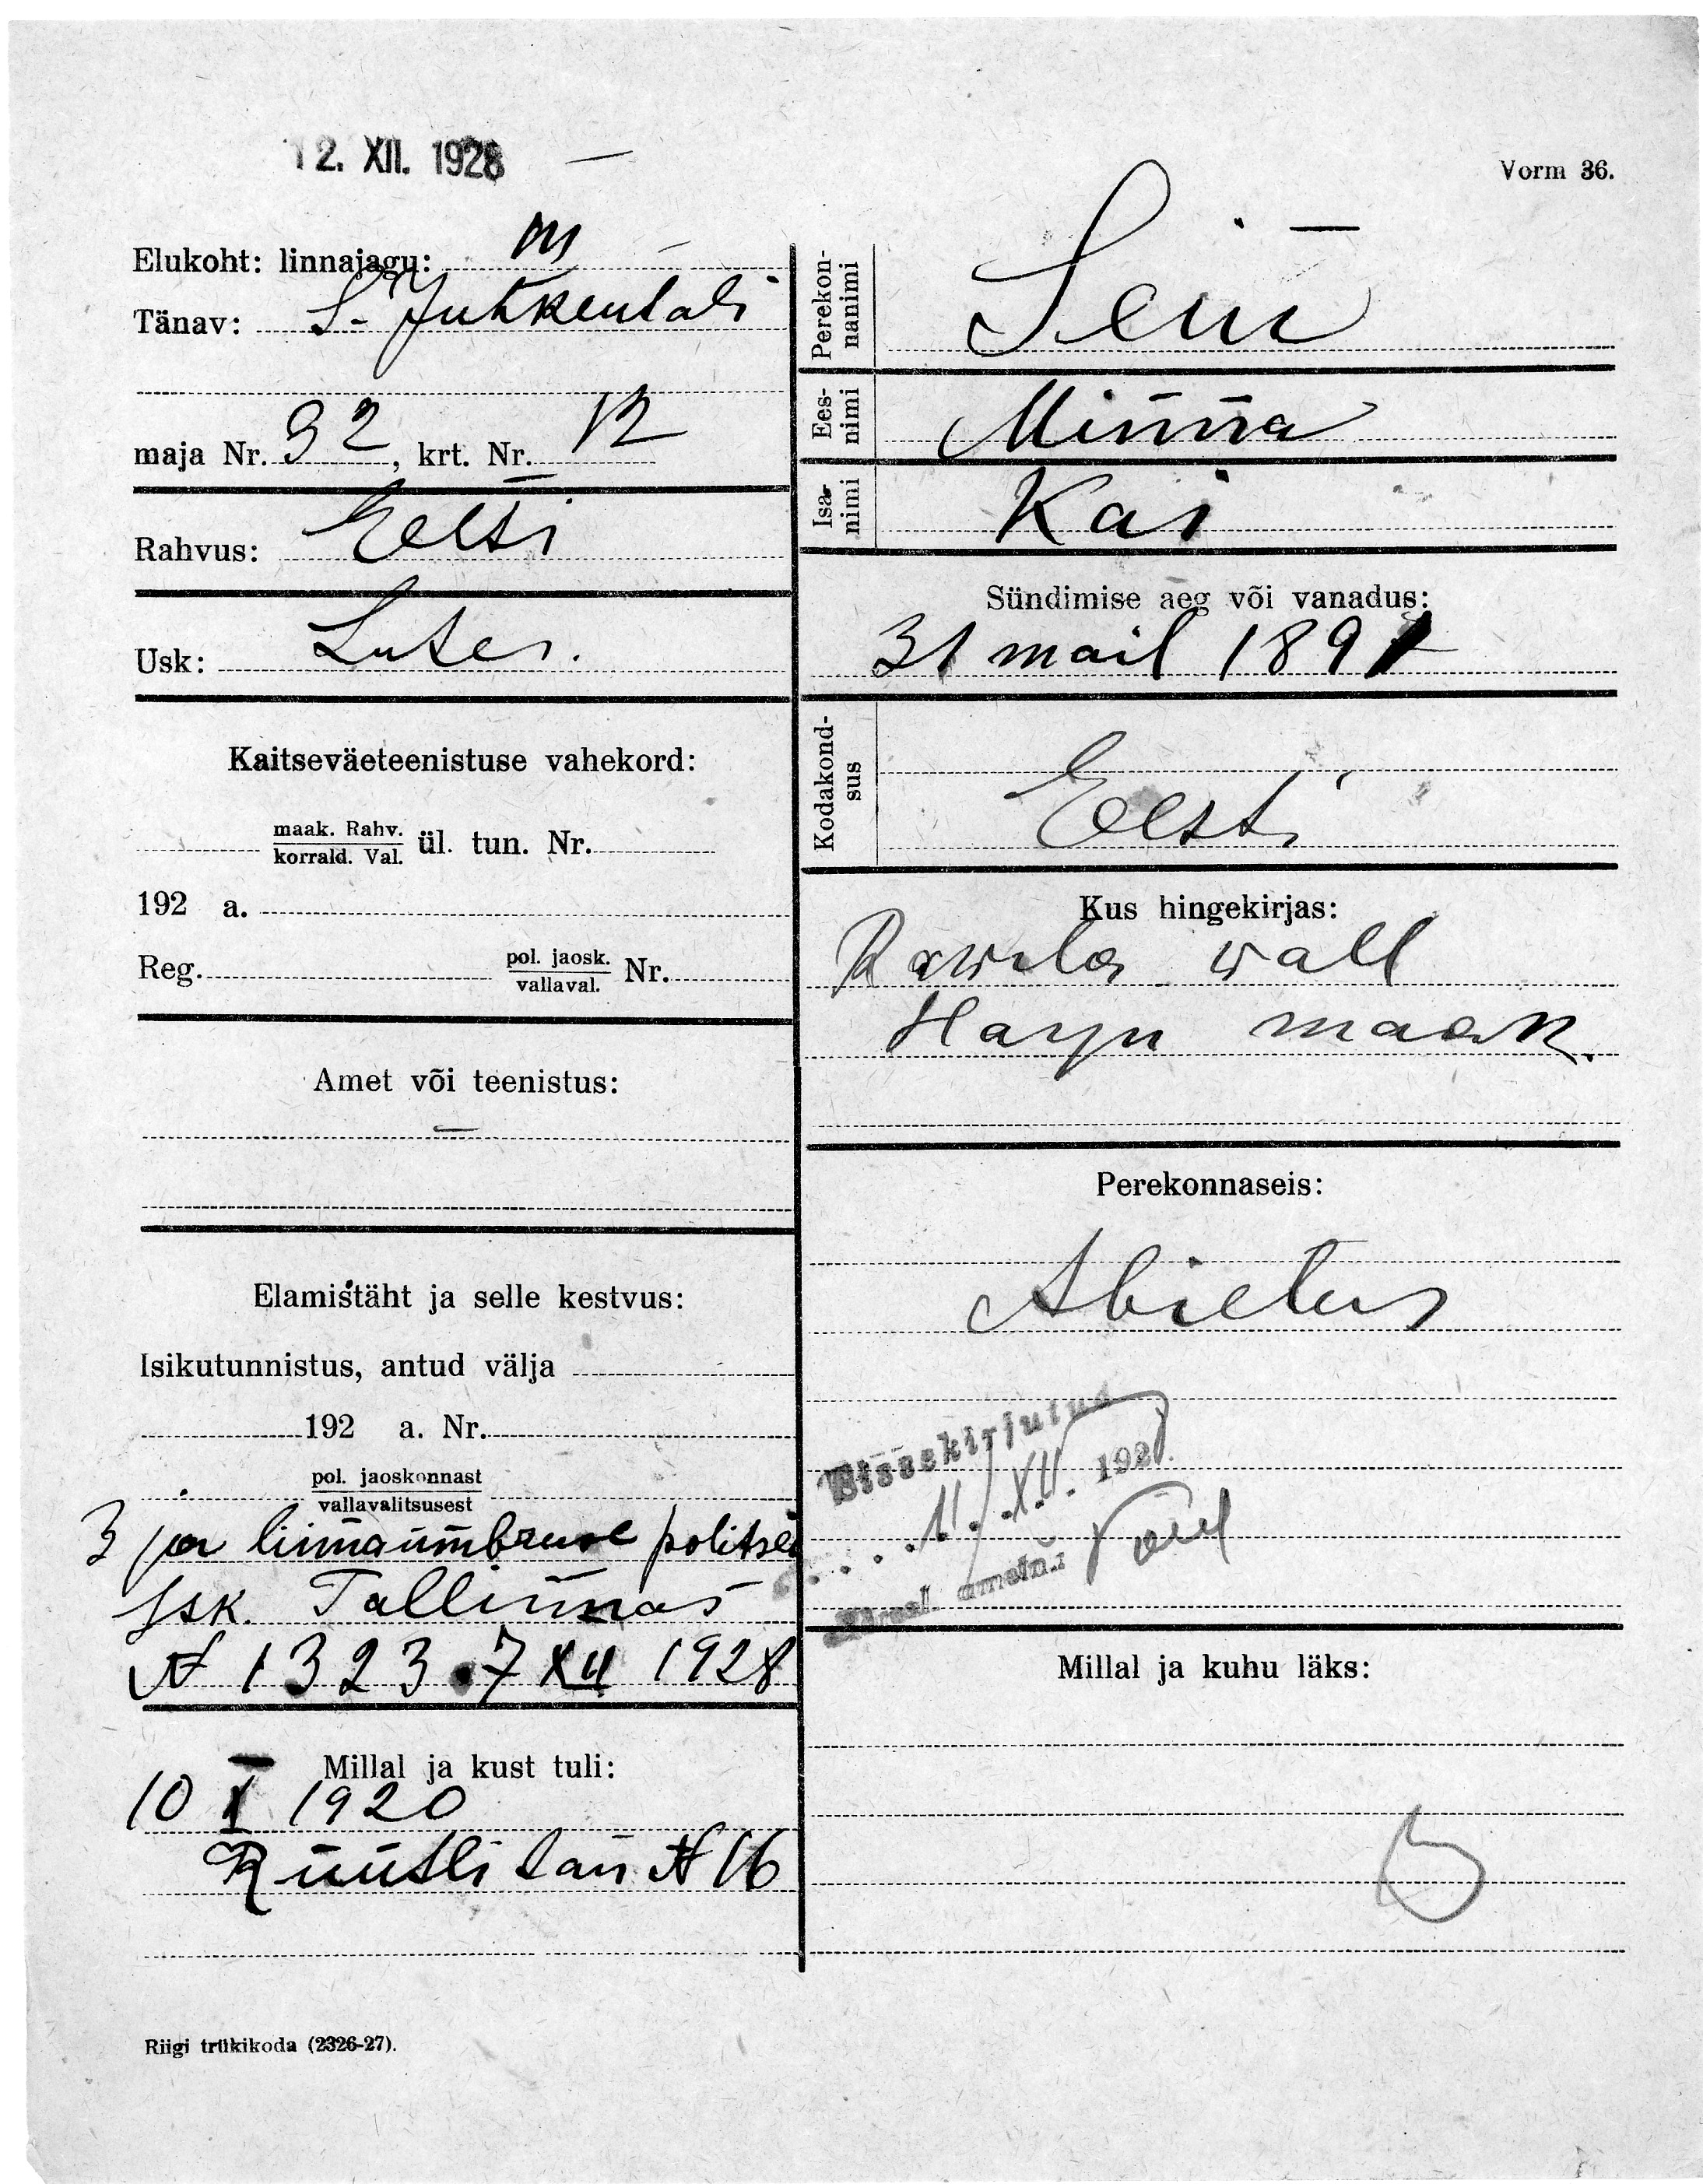 12. XII. 1928
Vorm 36.
Elukoht: linnajagu:
Tänav: S- Juhkentali
maja Nr. 32, krt. Nr. 12
Rahvus: Eesti
Usk: Luter.
Kaitseväeteenistuse vahekord:
maak. Rahv. korrald. Val. ül. tun. Nr.
192 a.
Reg. pol. jaosk. vallaval. Nr.
Amet või teenistus:
—
Elamistäht ja selle kestvus:
Isikutunnistus, antud välja
192 a. Nr.
pol. jaoskonnast
vallavalitsusest
3 ja linnaümbruse politsei
jsk. Tallinnas
№ 1323 . 7 XII 1928
Millal ja kust tuli:
10 X 1920
Rüütli tän № 16
Riigi trükikoda (2326-27).
Perekonnanimi
Eesnimi Minna
Isanimi Kai
Sündimise aeg või vanadus:
31 mail 1891
Kodakondsus Eesti
Kus hingekirjas:
Rawila wall
Harju maak.
Perekonnaseis:
Abielus
Sissekirjutud
11. XII. 192
ametn.:
Millal ja kuhu läks: